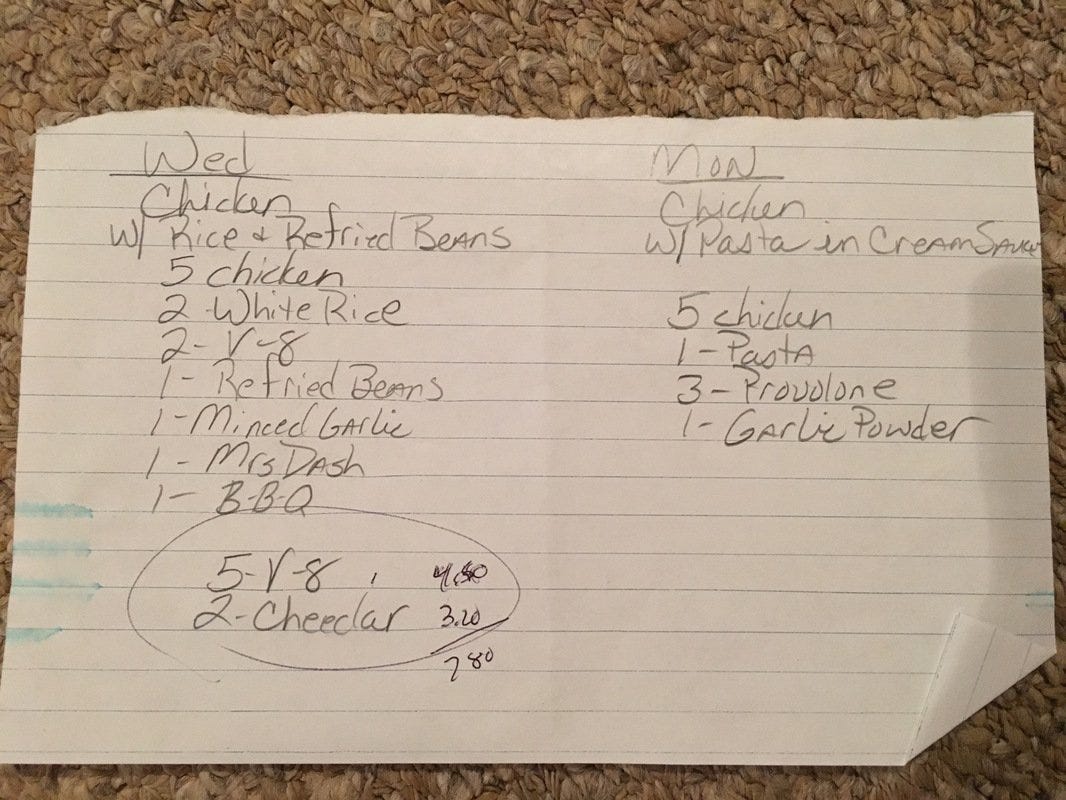 Wed
Chicken
W/ Rice & Refried Beans
5 chicken
2 White Rice
2- V-8
1- Refried Beans
1- Minced Garlic
1- Mrs Dash
1- B-B-Q
5-V-8
2-Cheedar 3.20
7 80
Mon
Chicken
W/ Pasta in Cream Sauce
5 chicken
1- Pasta
3- Provolone
1- Garlic Powder